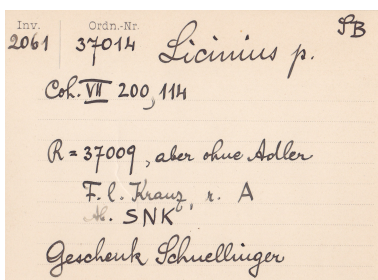 Inv. Ordn.-Nr. SB
2061 37014 Licinius p.
Coh. VII 200, 114
R = 37009, aber ohne Adler
F. l. Kranz, r. A
Ab. SNK
Geschenk Schnellinger